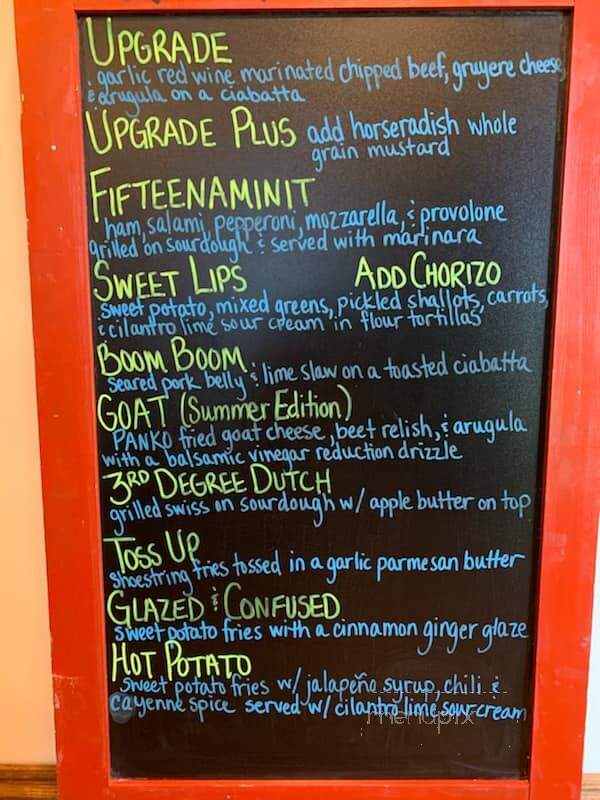 UPGRADE
garlic red wine marinated chipped beef, gruyere cheese,
& arugula on a ciabatta
UPGRADE PLUS add horseradish whole
grain mustard
FIFTEENAMINIT
ham, salami, pepperoni, mozzarella, & provolone
grilled on sourdough & served with marinara
SWEET LIPS ADD CHORIZO
sweet potato, mixed greens, pickled shallots, carrots,
& cilantro lime sour cream in flour tortillas
BOOM BOOM
seared pork belly & lime slaw on a toasted ciabatta
GOAT (Summer Edition)
PANKO fried goat cheese, beet relish, & arugula
with a balsamic vinegar reduction drizzle
3RD DEGREE DUTCH
grilled swiss on sourdough w/ apple butter on top
TOSS UP
shoestring fries tossed in a garlic parmesan butter
GLAZED & CONFUSED
sweet potato fries with a cinnamon ginger glaze
HOT POTATO
sweet potato fries w/ jalapeño syrup, chili &
cayenne spice served w/ cilantro lime sour cream
menupix